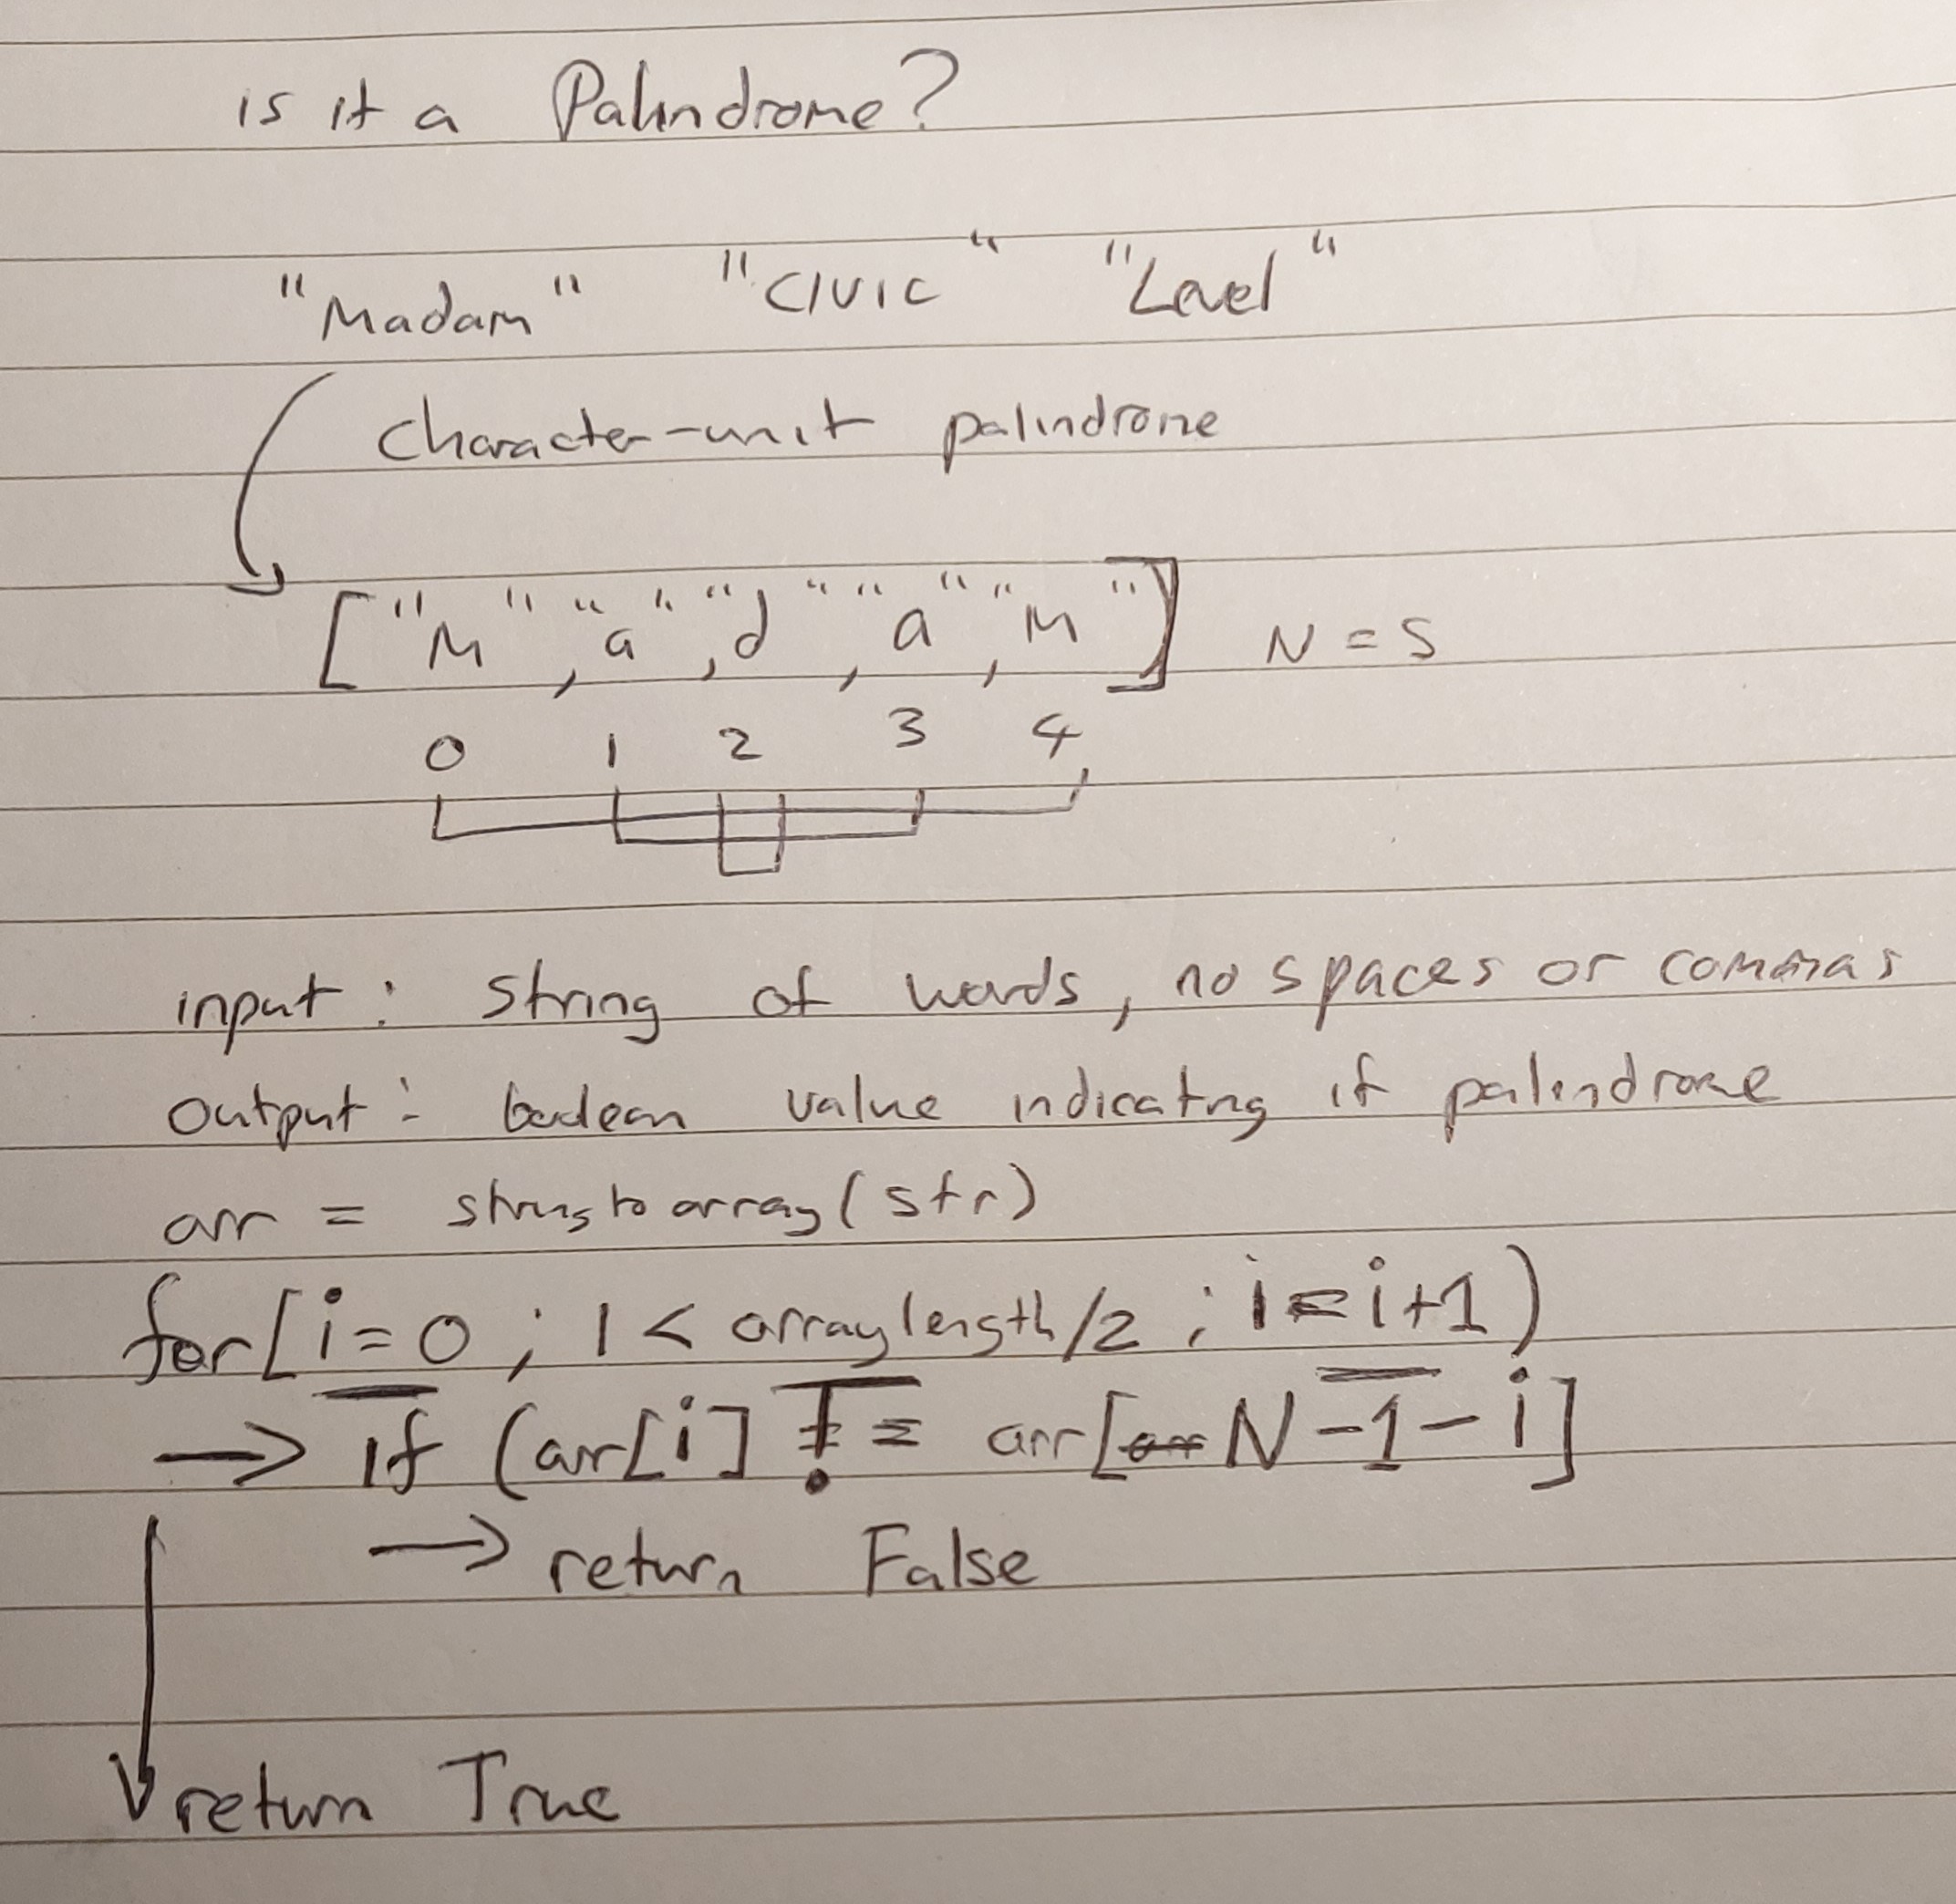 is it a Palindrome?
"Madam" "CIVIC" "Level"
Character-unit palindrome
["M", "a", "d", "a", "m"] N = 5
0 1 2 3 4
input: string of words, no spaces or commas
output: boolean value indicating if palindrome
arr = string to array (str)
for [i=0; i < array length/2; i=i+1)
→ if (arr[i] != arr[N-1-i]
→ return False
return True